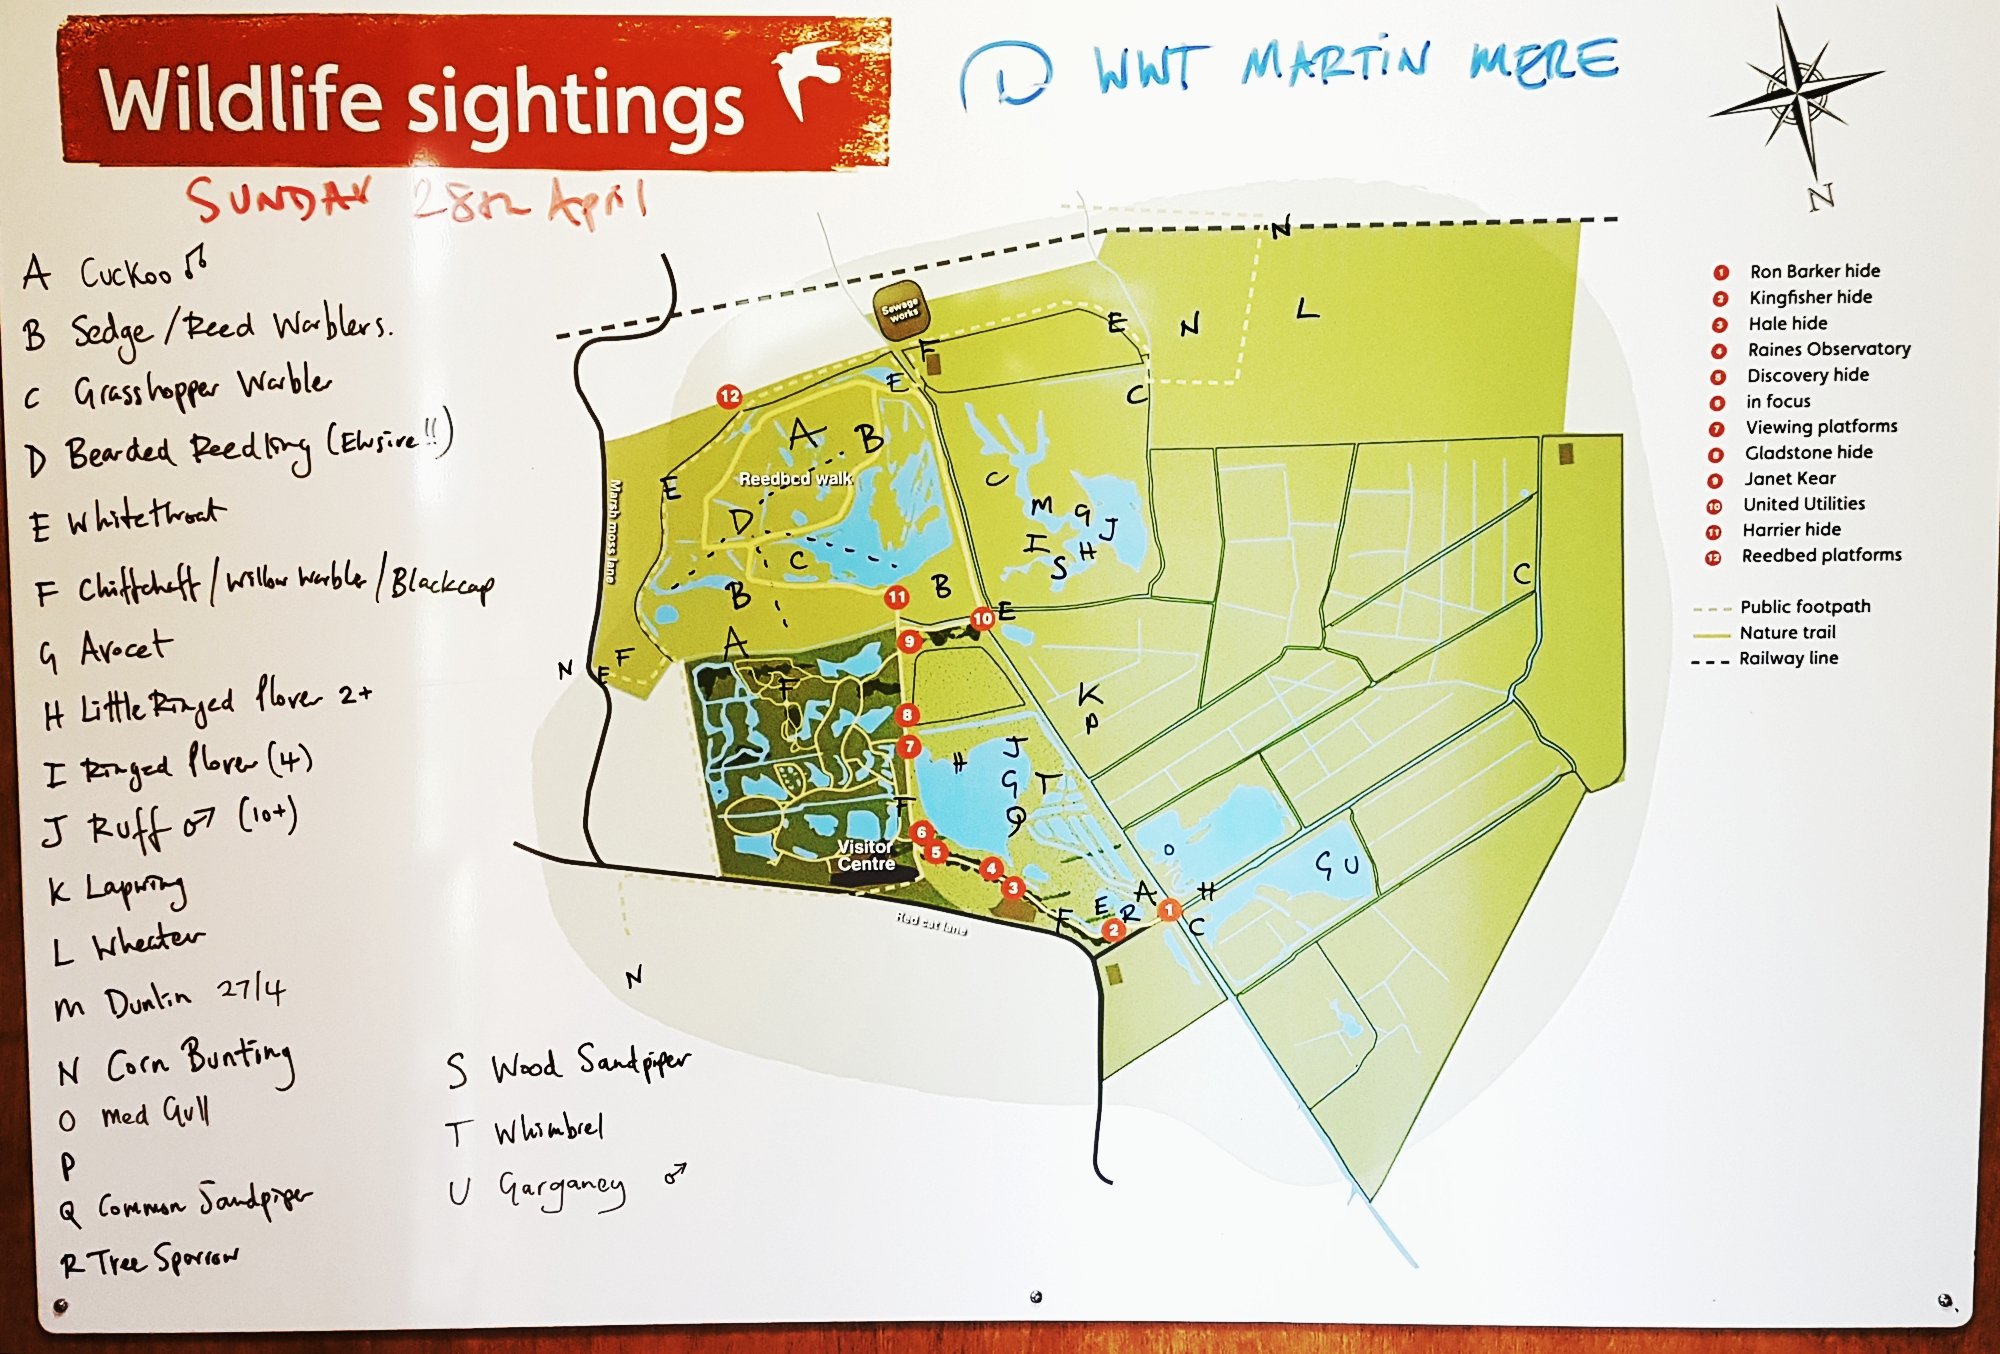 Wildlife sightings
WWT MARTIN MERE
SUNDAY 28th April
N
A Cuckoo
B Sedge/Reed Warblers.
C Grasshopper Warbler
D Bearded Reedling (Elusive!!)
E Whitethroat
F Chiffchaff/Willow Warbler/Blackcap
G Avocet
H Little Ringed Plover 2+
I Ringed Plover (4)
J Ruff ♂ (10+)
K Lapwing
L Wheatear
M Dunlin 27/4
N Corn Bunting
O Med Gull
P
Q Common Sandpiper
R Tree Sparrow
S Wood Sandpiper
T Whimbrel
U Garganey ♂
N
Sewage
works
E N L
F
12
E
C
A B
Reedbed walk
E
C
M G J
D
I H
S
C
C
Marsh moss lane
B
11 B
10 E
9
A
N E F
F
K
P
8
7
H J
G T
Q
F
6
5
Visitor
Centre
4
3
O
G U
A H
E R
F
2 1 C
Red cat lane
N
1 Ron Barker hide
2 Kingfisher hide
3 Hale hide
4 Raines Observatory
5 Discovery hide
6 in focus
7 Viewing platforms
8 Gladstone hide
9 Janet Kear
10 United Utilities
11 Harrier hide
12 Reedbed platforms
Public footpath
Nature trail
Railway line